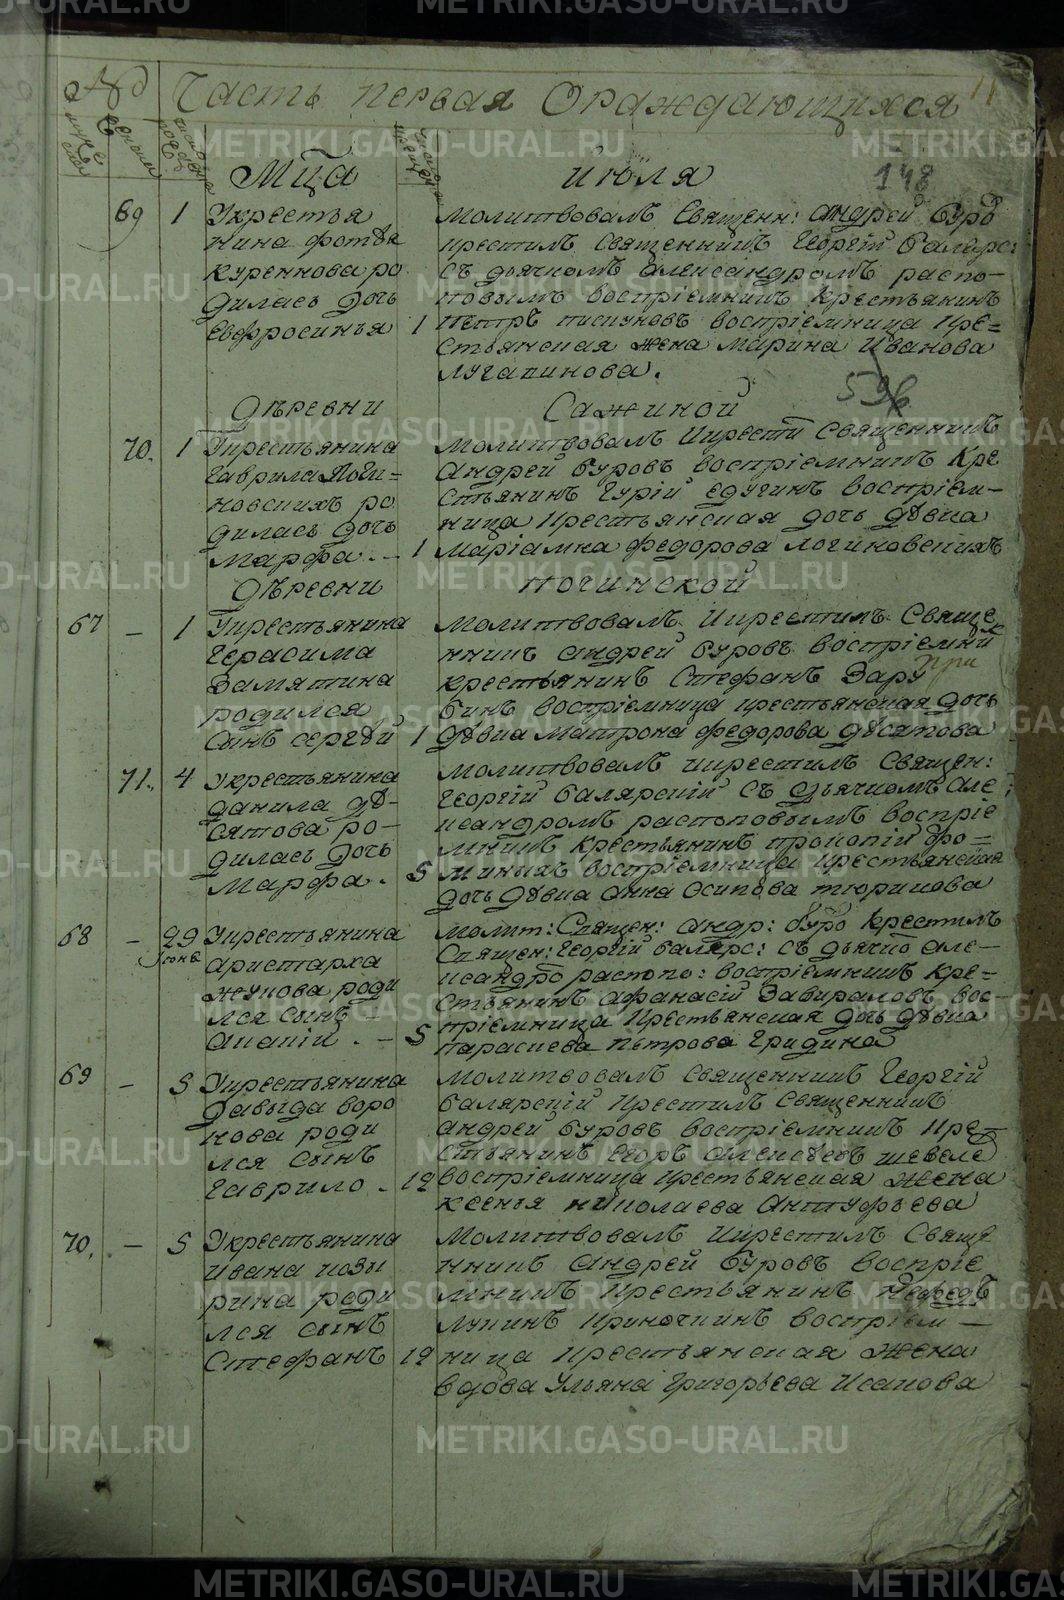 №
Часть первая Ораждающихся
148
Мца Июля
69 1 Укрестья
нина фотѣя
куреннова ро
дилась дочь
Евфросинья 1
молитвовалъ Священн: Андрей Буро
крестилъ Священникъ Георгій Балярс:
съ дьячкомъ Александромъ распо-
повымъ воспріемникъ крестьянинъ
петръ пискуновъ воспріемница кре=
стьянская жена марина Иванова
лугапинова.
596
Дѣревни Сажиной
70. 1 Укрестьянина
Гаврила Логи=
новскихъ ро
дилась дочь
Марфа. — 1
молитвовалъ Икрести Священникъ
Андрей Буровъ воспріемникъ Кре
стьянинъ Гурій Едугинъ воспріем-
ница крестьянская дочь дѣвка
Маріамна федорова логиновскихъ
Дѣревни Починской
67 — 1 Укрестьянина
Герасима
Замятина
родился
сынъ сергѣй 1
Молитвовалъ Икрестилъ Свяще
нникъ Андрей Буровъ воспріемни
крестьянинъ Стефанъ Зару
бинъ воспріемница крестьянская дочь
дѣвка Матрона федорова дѣсятова
71. 4 Укрестьянина
Данила дѣ-
сятова ро-
дилась дочь
Марфа. 5
Молитвовалъ икрестилъ Священ:
Георгій Балярскій съ дьячкомъ Але:
ксандромъ распоповымъ воспріе
мникъ крестьянинъ прокопій фо=
миныхъ воспріемница крестьянская
дочь дѣвка Анна Осипова тюрикова
68 — 29 Іюня Укрестьянина
Аристарха
жукова роди
лся сынъ —
Ананій. — 5
Молит: Священ: Андр: Буро крестилъ
Священ: Георгій Балярс: съ дьячко але-
ксандро распопо: воспріемникъ кре=
стьянинъ Афанасій Завираловъ вос-
пріемница Крестьянская дочь дѣвка
параскева петрова Гридина
69 — 5 Укрестьянина
Давыда воро
нова роди
лся сынъ
Гаврило — 12
Молитвовалъ Священникъ Георгій
Балярскій Крестилъ Священникъ
Андрей Буровъ воспріемникъ кре=
стьянинъ Егоръ Алексѣевъ шевеле
воспріемница Крестьянская жена
ксенья николаева Антуфьева
70. — 5 Укрестьянина
ивана козы
рина роди
лся сынъ
Стефанъ 12
Молитвовалъ Икрестилъ Свяще
нникъ Андрей Буровъ воспріе
мникъ крестьянинъ
лукинъ воспріем —
ница Крестьянская жена
вдова Ульяна Григорьева Исакова